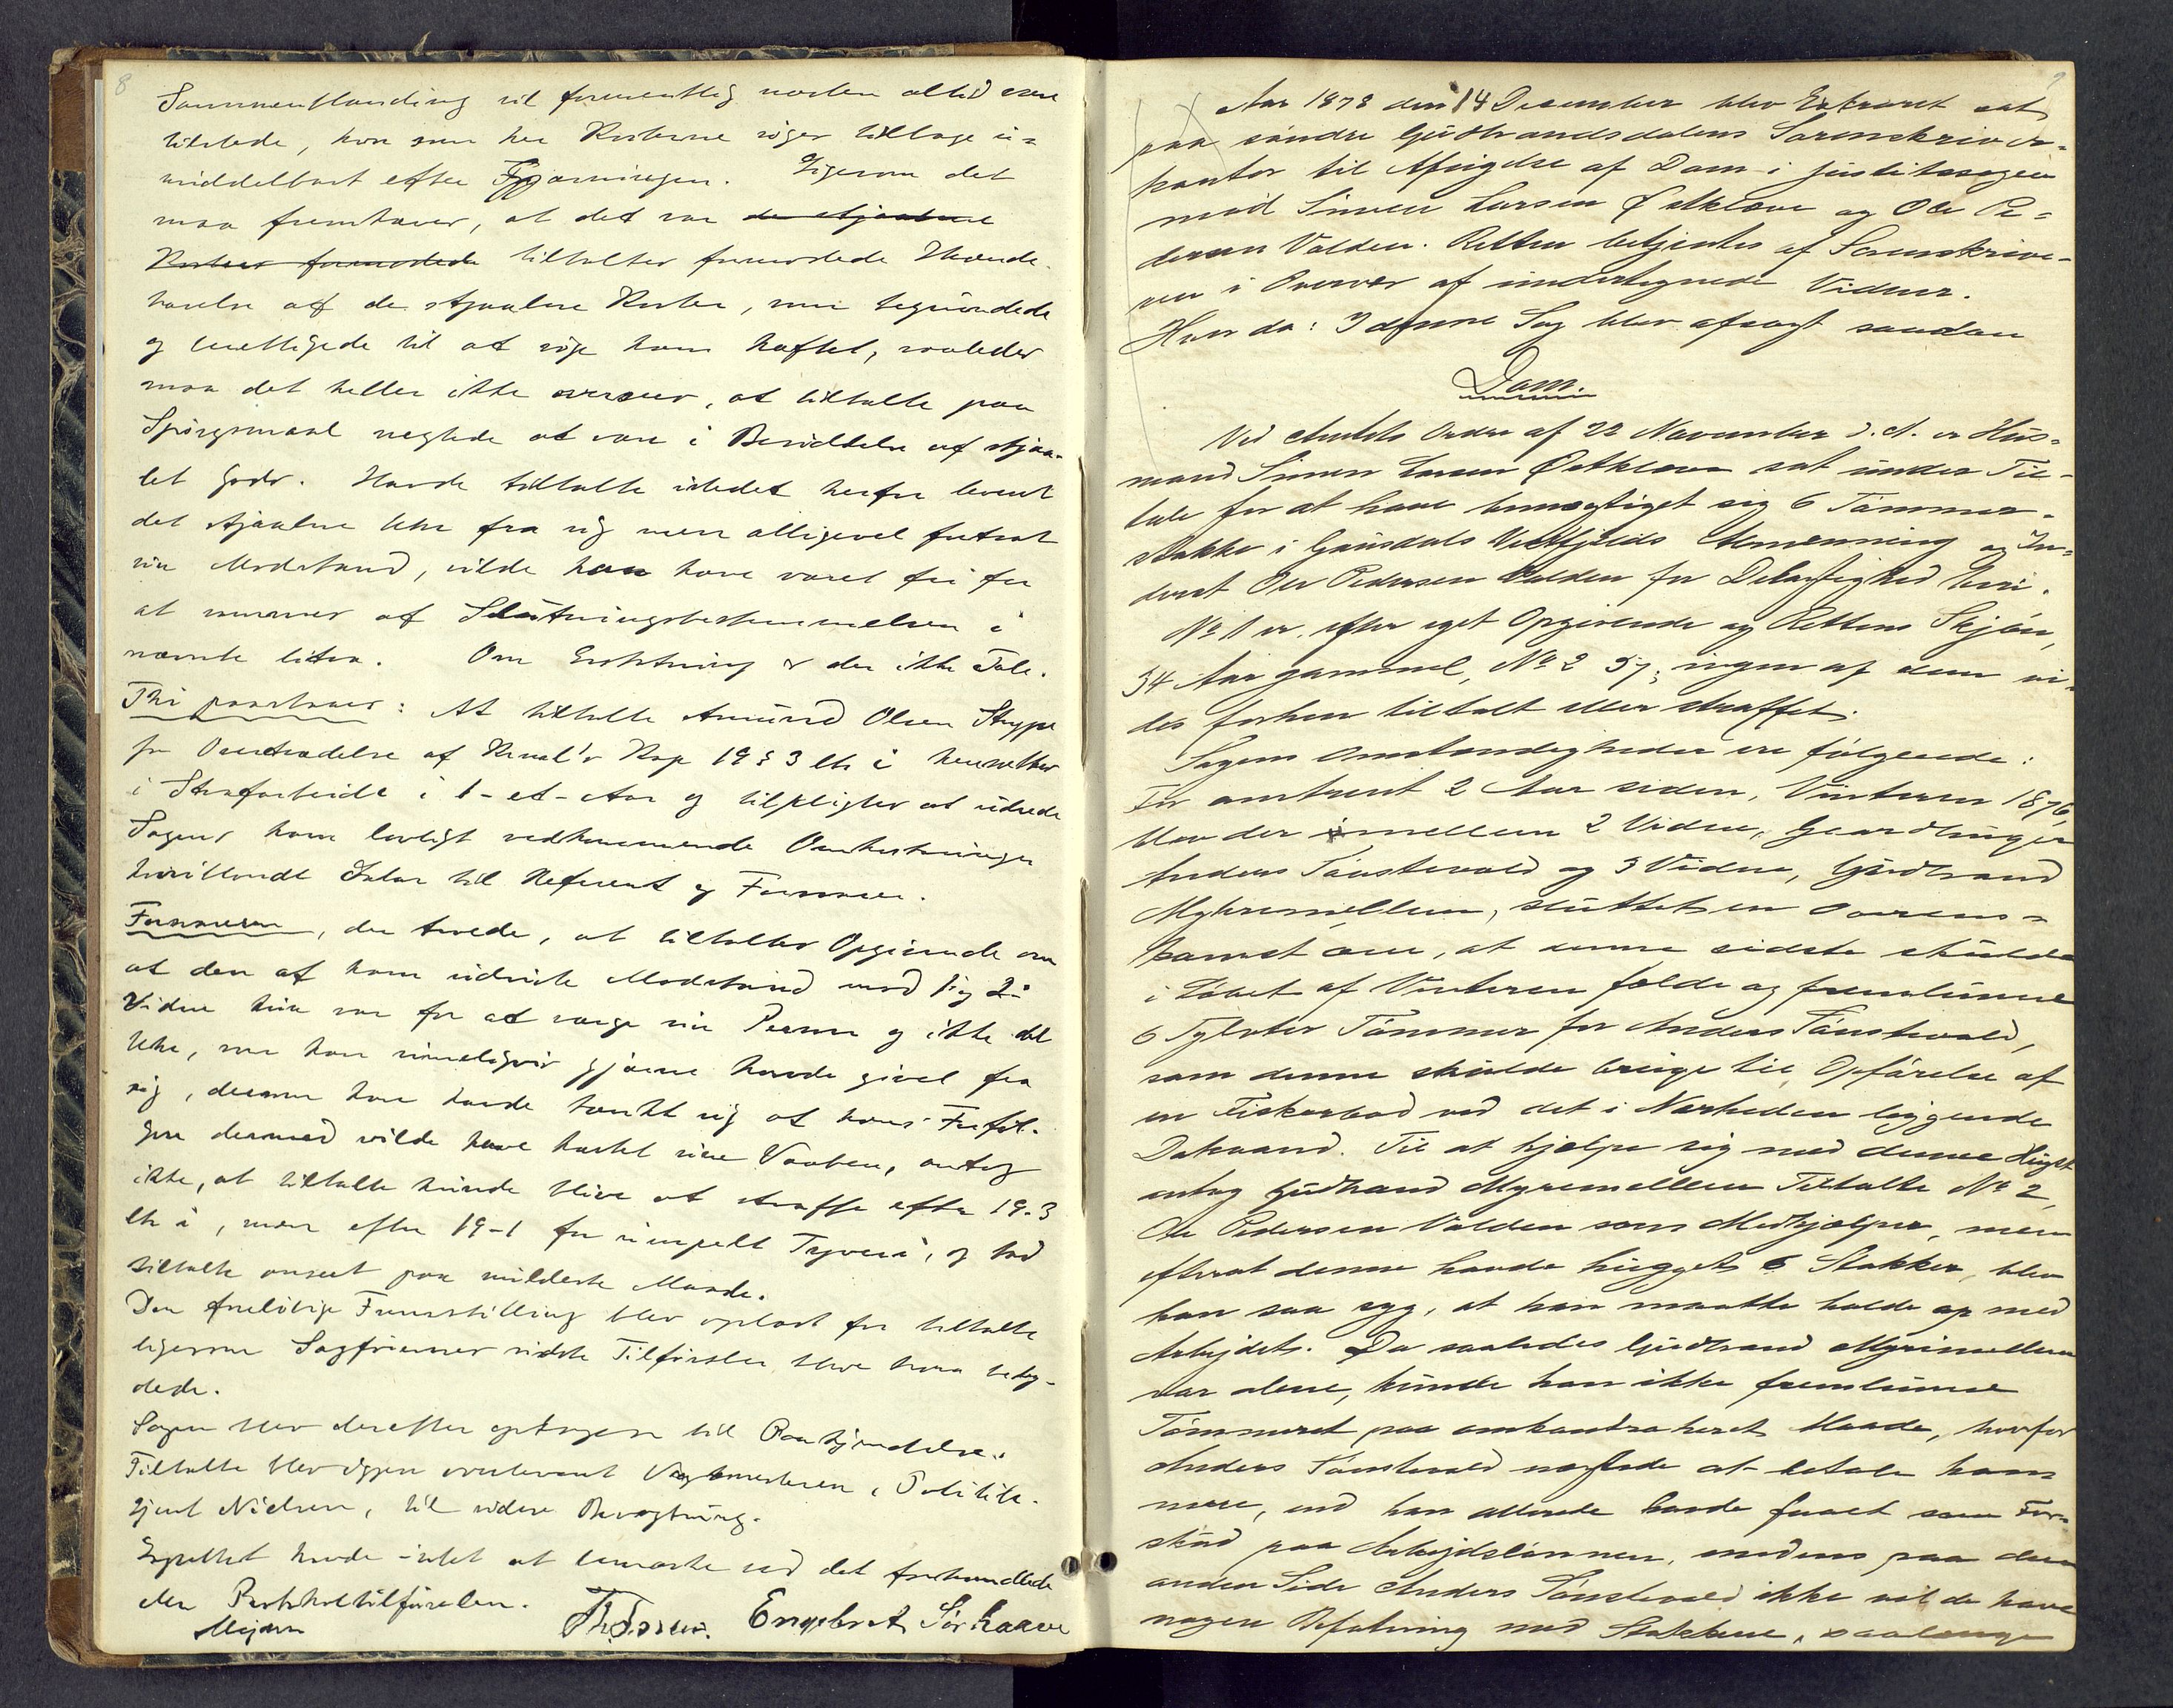 8
Sammenblanding vil formentlig næsten altid være
tilstede, hvor som her Kosterne søges tiltage u-
middelbart efter Gjerningen. Ligesom det
maa fremhæves, at det var de stjaalne
Koster formodede tiltaltes formodede Ihænde-
havelse af de stjaalne Koster, som begrundede
og berettigede til at søge ham hæftet, saaledes
maa det heller ikke oversees, at tiltalte paa
Spørgsmaal negtede at være i Besiddelse af stjaa-
let Gods. Havde tiltalte istedet herfor levert
det stjaalne Uhr fra sig men alligevel fortsat
sin Modstand, vilde han have været fri for
at rammes af Slutningsbestemmelsen i
nævnte litra. Om Erstatning er der ikke Tale.
Thi paastaaes: At tiltalte Amund Olsen Skyppe
for Overtrædelse af Krimal's Kap 19 § 3 ltr i hensættes
i Strafarbeide i 1-et-Aar og tilpligtes at udrede
Sagens ham lovligt vedkommende Omkostninger
hvoriblandt Salær til Referent og Forsvarer.
Forsvareren, der troede, at tiltaltes Opgivende om
at den af ham udviste Modstand mod 1 og 2det
Vidne kun var for at værge sin Person og ikke det
Uhr, som han rimeligvis gjerne havde givet fra
sig, dersom han havde tænkt sig at hans Forføl-
gere dermed vilde have kastet sine Vaaben, antog
ikke, at tiltalte kunde blive at straffe efter 19-3
ltr i, men efter 19-1 for simpelt Tyveri, og bad
tiltalte anseet paa mildeste Maade.
Den foreløbige Fremstilling blev oplæst for tiltalte
ligesom Sagførernes sidste Tilførsler blev ham betyd-
dede.
Sagen blev derefter optagen til Paakjendelse.
Tiltalte blev igjen overleveret Vagtmesteren, Politibe-
tjent Nielsen, til videre Bevogtning.
Lagrettet havde intet at bemærke ved det forhandlede
eller Protokoltilførselen.
Mejdell Th. Lossius. Engebret Sørhaave
9
Aar 1878 den 14 December blev Extraret sat
paa søndre Gudbrandsdalens Sorenskriver-
kontor til Afsigelse af Dom i Justitssagen
mod Simen Larsen Østklæve og Ole Pe-
dersen Volden. Retten betjentes af Sorenskrive-
ren i Overvær af undertegnede Vidner.
Hvor da: I denne Sag blev afsagt saadan
Dom.
Ved Amtets Ordre af 22 November d. A. er Hus-
mand Simen Larsen Østklæve sat under Til-
tale for at have bemægtiget sig 6 Tømmer-
stokke i Gausdals Vestfjelds Almenning og In-
derst Ole Pedersen Volden for Delagtighed heri.
No 1 er, efter eget Opgivende og Rettens Skjøn,
54 Aar gammel, No 2 57; ingen af dem vi-
des forhen tiltalt eller straffet.
Sagens Omstændigheder ere følgende:
For omtrent 2 Aar siden, Vinteren 1876,
blev der imellem 2 Vidne, Gaardbruger
Anders Tønstevold og 3 Vidne, Gudbrand
Myhremellem, sluttet en Overens-
komst om, at denne sidste skulde
i Løbet af Vinteren fælde og fremlunne
6 Tylvter Tømmer for Anders Tønstevold,
som denne skulde bruge til Opførelse af
en Fiskerbod ved det i Nærheden liggende
Dokvand. Til at hjælpe sig med denne Hugst
antog Gudbrand Myremellem Tiltalte No 2,
Ole Pedersen Volden som Medhjælper, men
efterat denne havde hugget 6 Stokker, blev
han saa syg, at han maatte holde op med
Arbeidet. Da saaledes Gudbrand Myremellem
var alene, kunde han ikke fremlunne
Tømmeret paa omkontraheret Maade, hvorfor
Anders Tønstevold nægtede at betale ham
mere, end han allerede havde faaet som For-
skud paa Arbeidslønnen, medens paa den
anden Side Anders Tønstevold ikke vilde have
nogen Befatning med Stokkene, saalænge